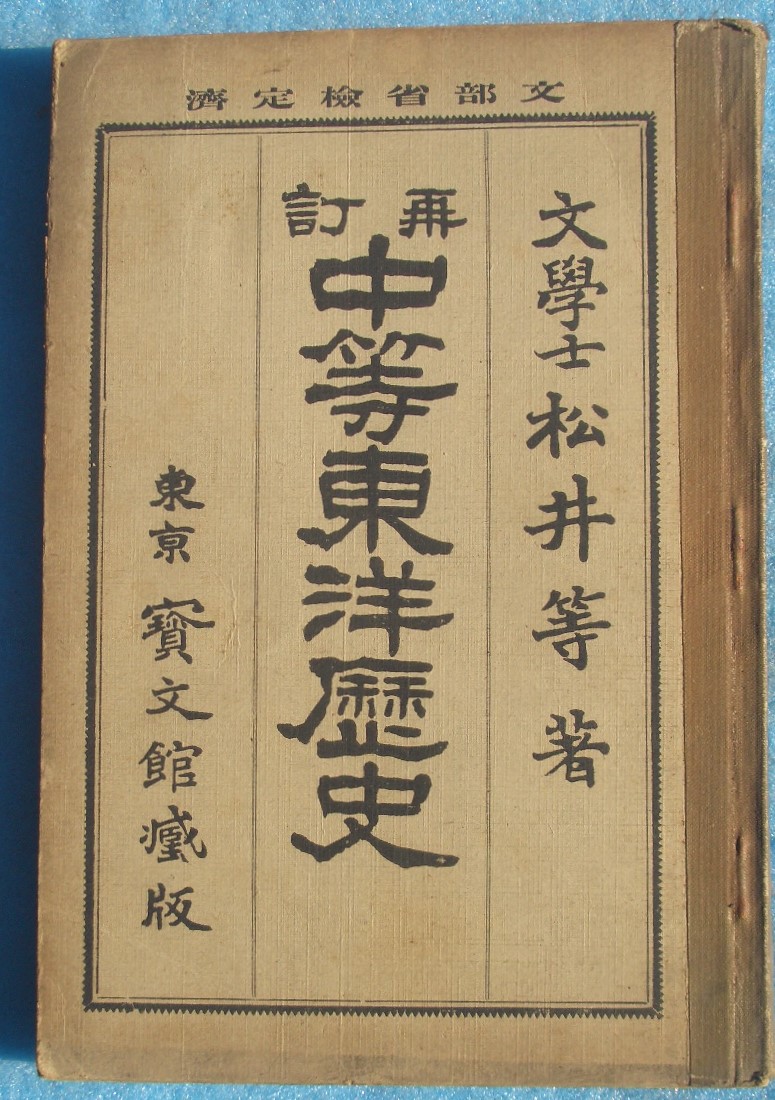 文部省檢定濟
文學士 松井等 著
再訂
中等東洋歷史
東京 寶文館藏版